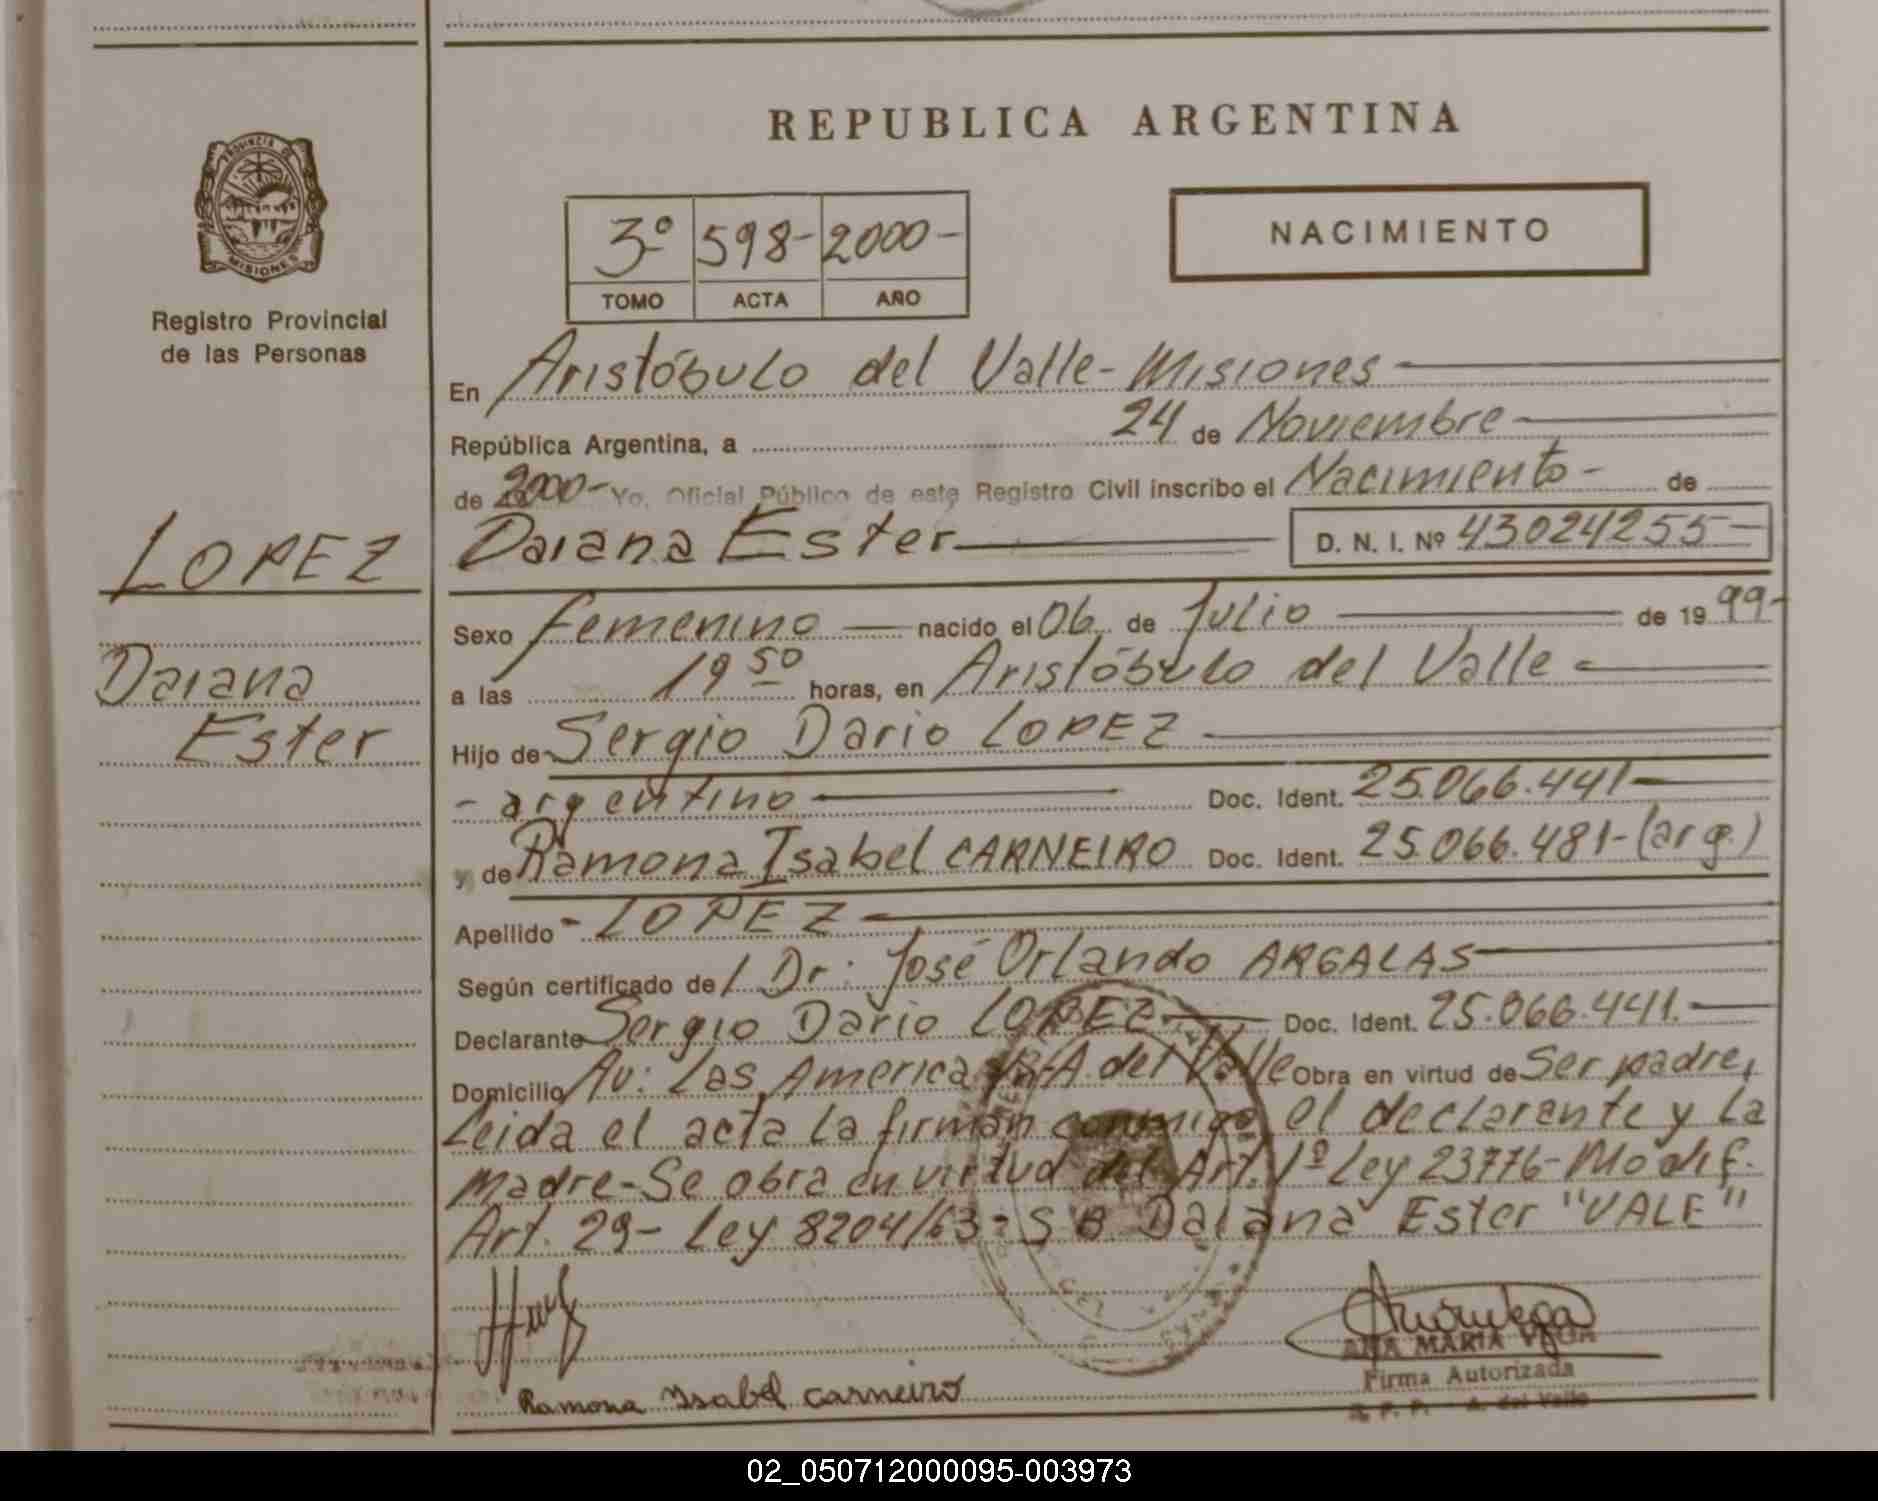 REPUBLICA ARGENTINA
PROVINCIA DE
MISIONES
Registro Provincial
de las Personas
3º 598- 2000-
TOMO ACTA AÑO
NACIMIENTO
En Aristóbulo del Valle - Misiones
República Argentina, a 24 de Noviembre
de 2000- Yo, Oficial Público de este Registro Civil inscribo el Nacimiento - de
LOPEZ
Daiana Ester
D. N. I. Nº 43024255-
Sexo femenino nacido el 06 de Julio de 1999-
Daiana
a las 19 50 horas, en Aristóbulo del Valle
Ester
Hijo de Sergio Dario LOPEZ
- argentino Doc. Ident. 25.066.441-
y de Ramona Isabel CARNEIRO Doc. Ident. 25.066.481-(arg.)
Apellido - LOPEZ
Según certificado de / Dr: José Orlando ARGALAS
Declarante Sergio Dario LOPEZ Doc. Ident. 25.066.441.
Domicilio Av: Las America A. del Valle Obra en virtud de Ser padre,
Leida el acta la firman conmigo el declarante y la
madre-Se obra en virtud del Art. 1º Ley 23776-Modif.
Art. 29- Ley 8204/63- S B Daiana Ester "VALE"
Ramona Isabel Carneiro
ANA MARIA
Firma Autorizada
R. P. P. - A. del Valle
02_050712000095-003973